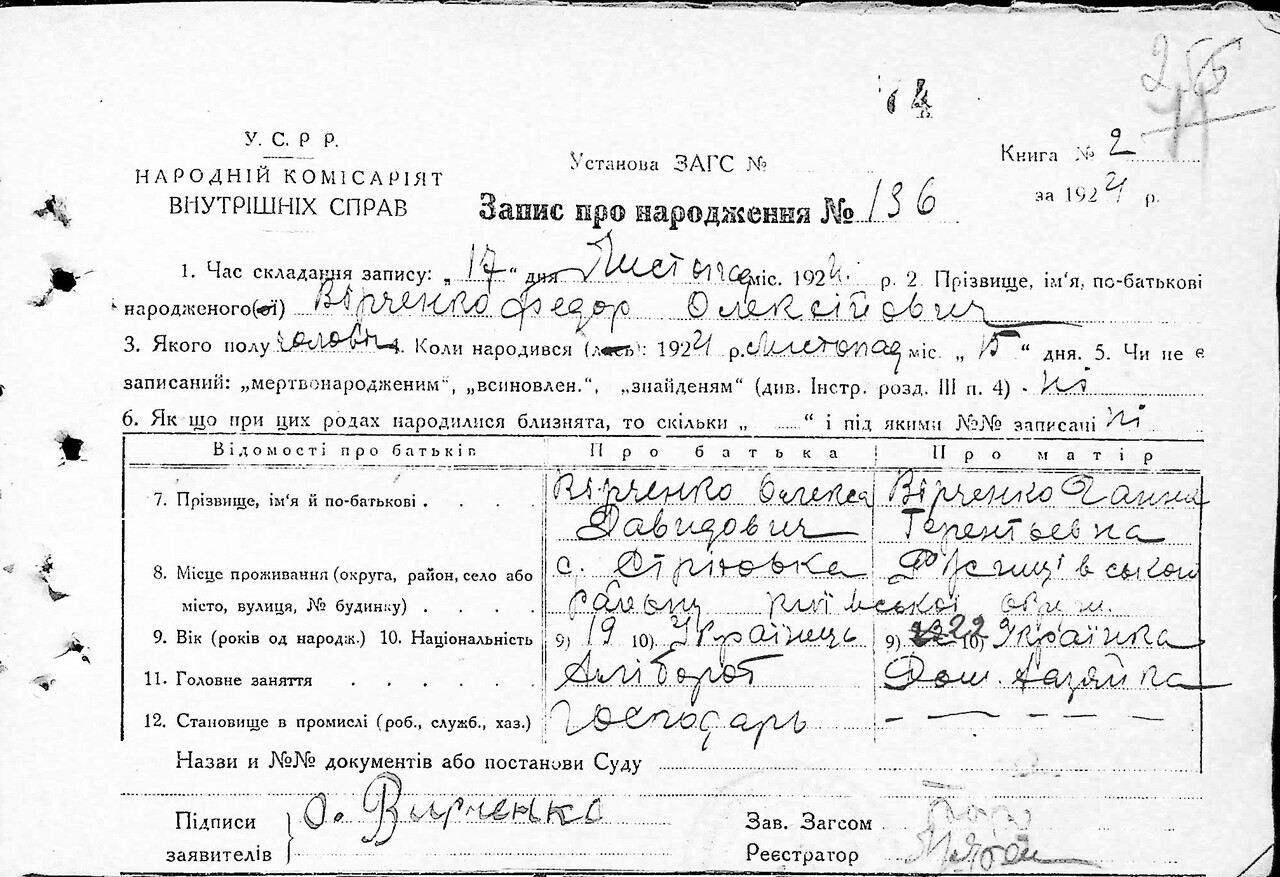 4
У. С. Р Р.
НАРОДНІЙ КОМІСАРІЯТ
ВНУТРІШНІХ СПРАВ
Установа ЗАГС №
Книга № 2
за 1924 р.
Запис про народження № 136
1. Час складання запису: „ 17 “ дня Листопад міс. 1924 р. 2. Прізвище, ім'я, по-батькові
народженого(ої) Вірченко Федор Олексійович
3. Якого полу чолов. 4. Коли народився (лась): 1924 р. Листопад міс. „ 15 “ дня. 5. Чи не є
записаний: „мертвонародженим“, „всиновлен.“, „знайденям“ (див. Інстр. розд. III п. 4) - ні
6. Як що при цих родах народилися близнята, то скільки „ “ і під якими №№ записані ні
Відомості про батьків Про батька Про матір
7. Прізвище, ім'я й по-батькові . . . . Вірченко Олекса Вірченко Ганна
Давидович Терентьевна
8. Місце проживання (округа, район, село або с.
місто, вулиця, № будинку) . . . . району Київської округи.
9. Вік (років од народж.) 10. Національність 9) 19 10) Українець 9) 22 10) Українка
11. Головне заняття . . . . . . Хлібороб Дом. хазяйка
12. Становище в промислі (роб., служб., хаз.) Господарь — — — —
Назви и №№ документів або постанови Суду
Підписи
заявителів
О. Вирченко
Зав. Загсом
Реєстратор